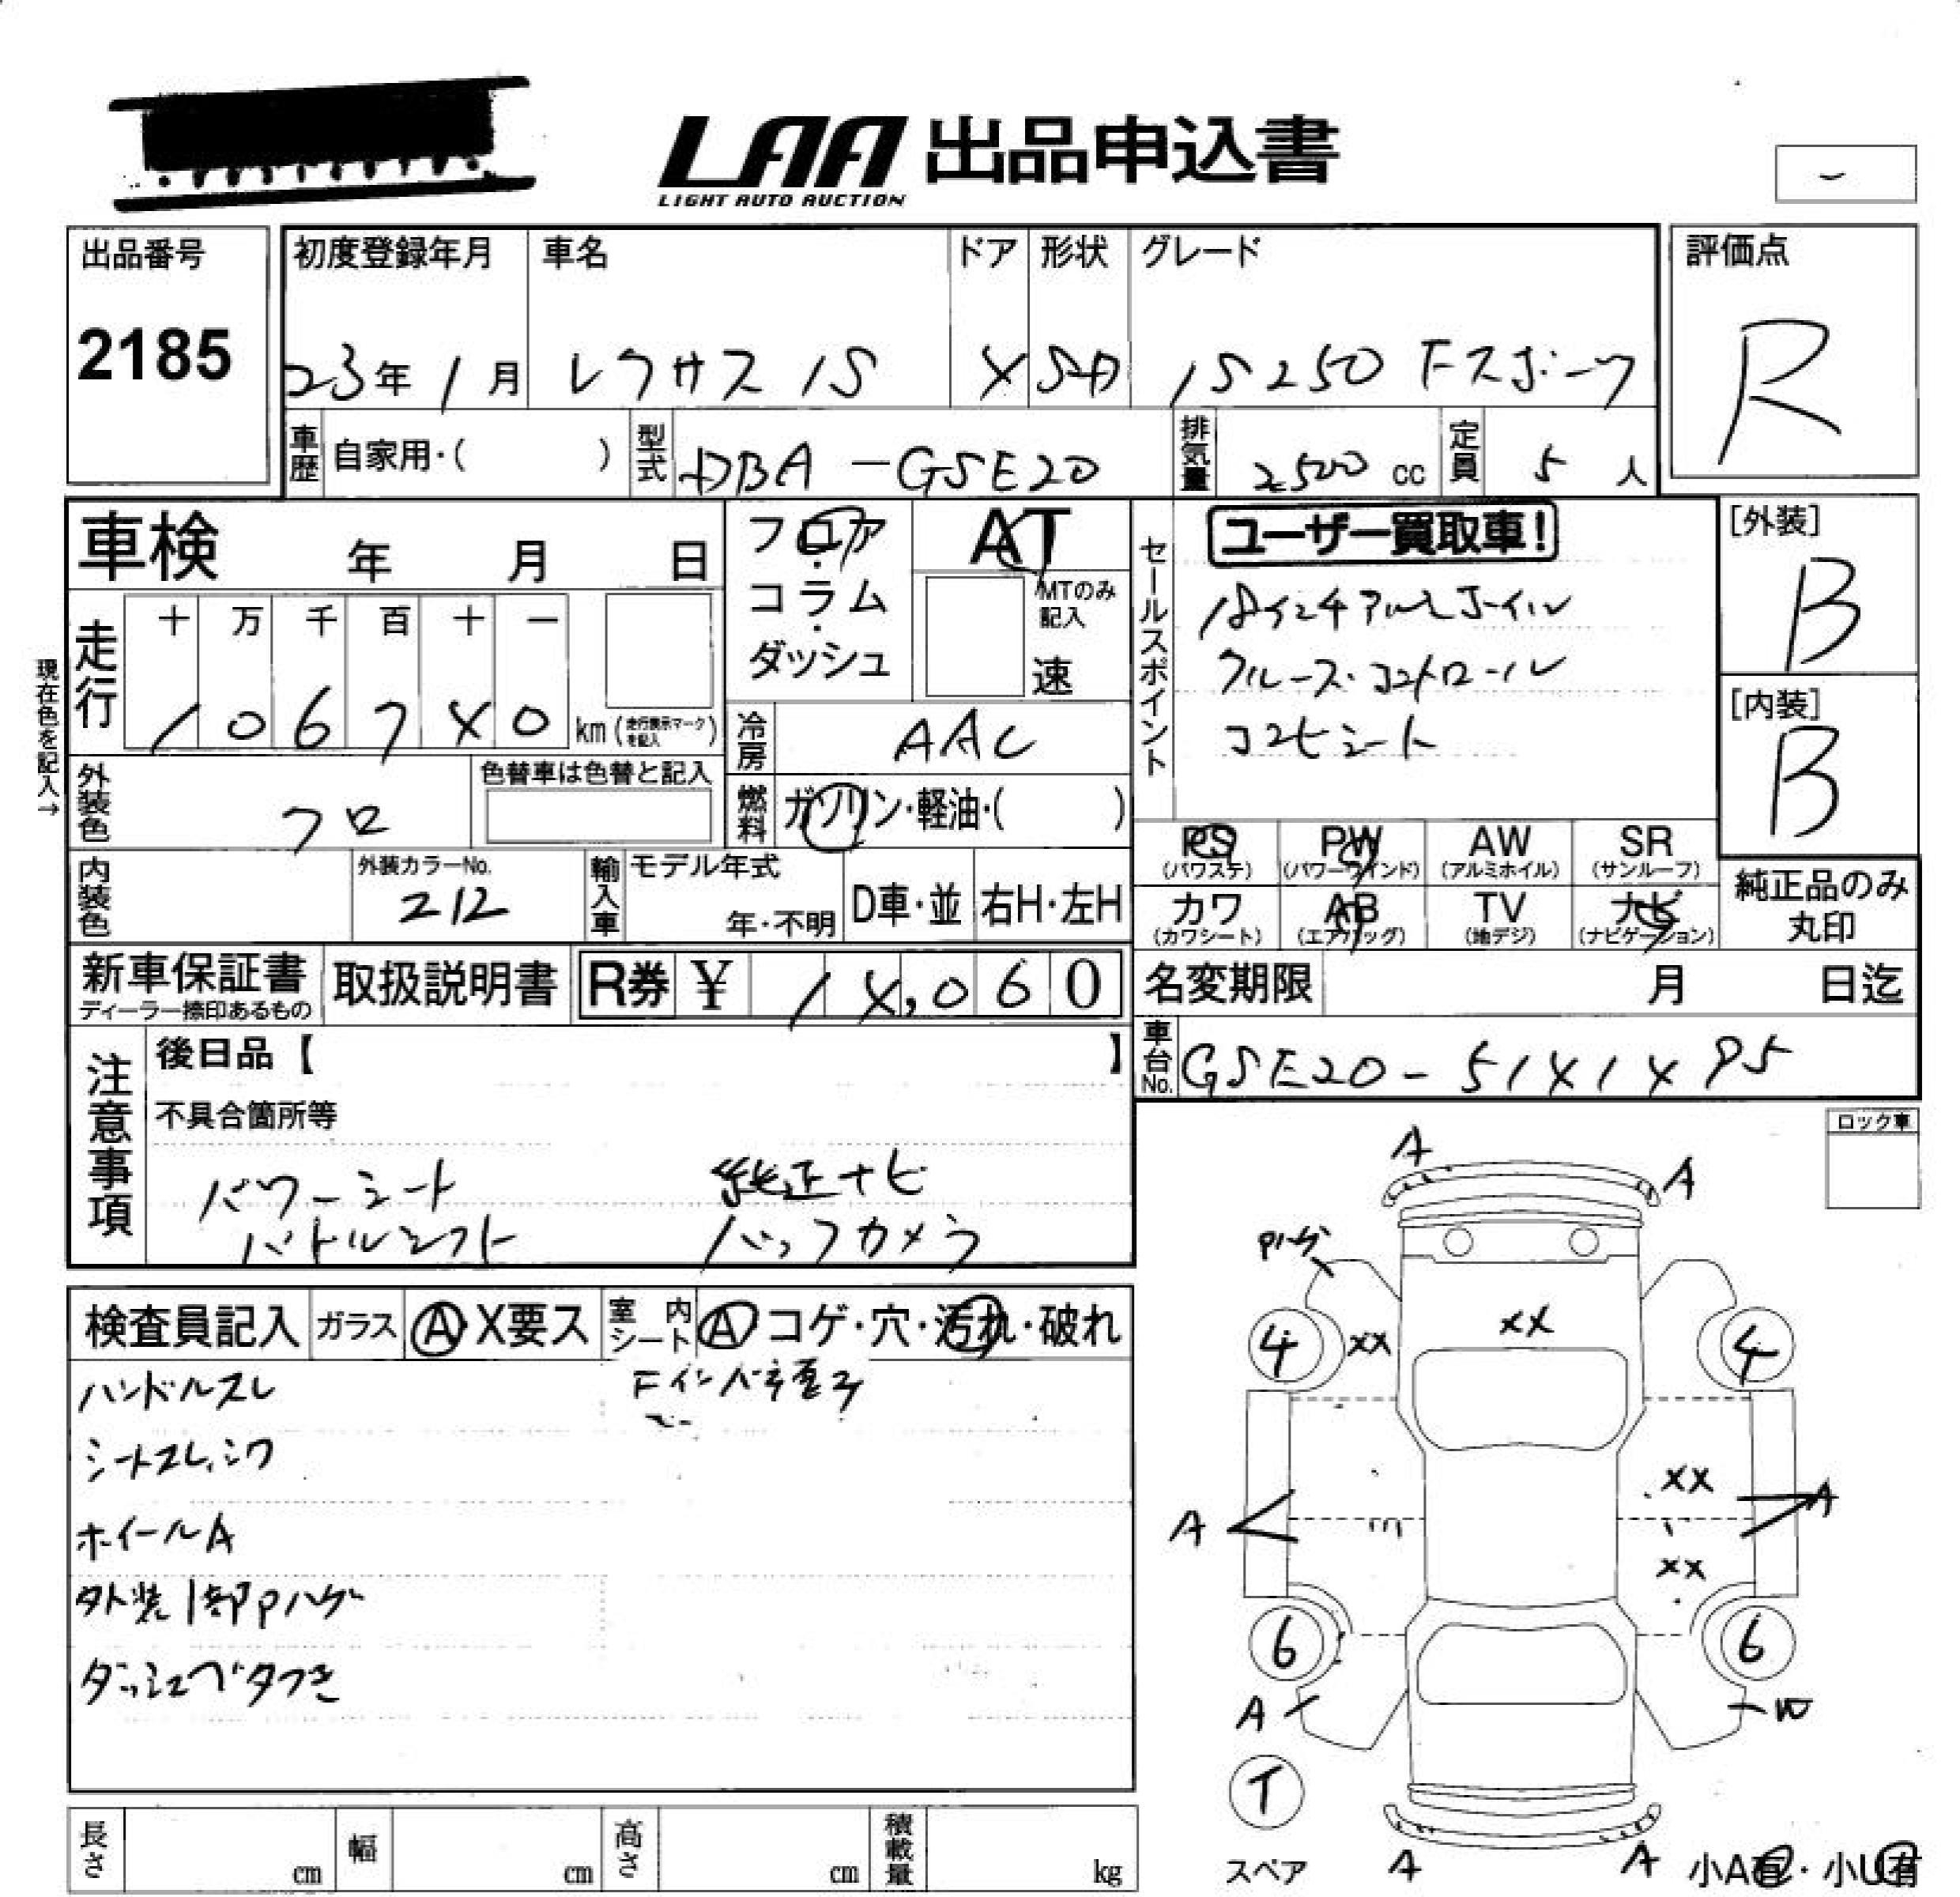 LAA 出品申込書
LIGHT AUTO AUCTION
出品番号 初度登録年月 車名 ドア 形状 グレード 評価点
2185 23年 1月 レクサス IS 4 SD IS250 Fスポーツ R
車歴 自家用・( ) 型式 DBA-GSE20 排気量 2500 cc 定員 5 人
車検 年 月 日
フロア・コラム・ダッシュ
AT
MTのみ記入
速
セールスポイント
ユーザー買取車!
18インチアルミホイル
クルーズ・コントロール
コンビシート
[外装]
B
[内装]
B
現在色を記入→
走行 十 万 千 百 十 一
1 0 6 7 4 0 km (走行表示マークを記入)
冷房 AAC
外装色 クロ 色替車は色替と記入
燃料 ガソリン・軽油・( )
内装色 外装カラーNo. 212 輸入車 モデル年式 年・不明 D車・並 右H・左H
PS (パワステ) PW (パワーウインド) AW (アルミホイル) SR (サンルーフ)
カワ (カワシート) AB (エアバッグ) TV (地デジ) ナビ (ナビゲーション)
純正品のみ丸印
新車保証書 ディーラー捺印あるもの 取扱説明書 R券 ¥ 14,060
名変期限 月 日迄
車台No. GSE20-5141495
注意事項
後日品【 】
不具合箇所等
パワーシート 純正ナビ
パドルシフト バックカメラ
ロック車
検査員記入 ガラス A・X要ス 室内シート A コゲ・穴・汚れ・破れ
ハンドルスレ
シートスレ、シワ
ホイールA
外装1部Pハゲ
ダッシュベタつき
A A
Pハゲ
4 XX XX 4
XX
A A
XX
6 6
A W
T
スペア
A A
小A有・小U有
長さ cm 幅 cm 高さ cm 積載量 kg